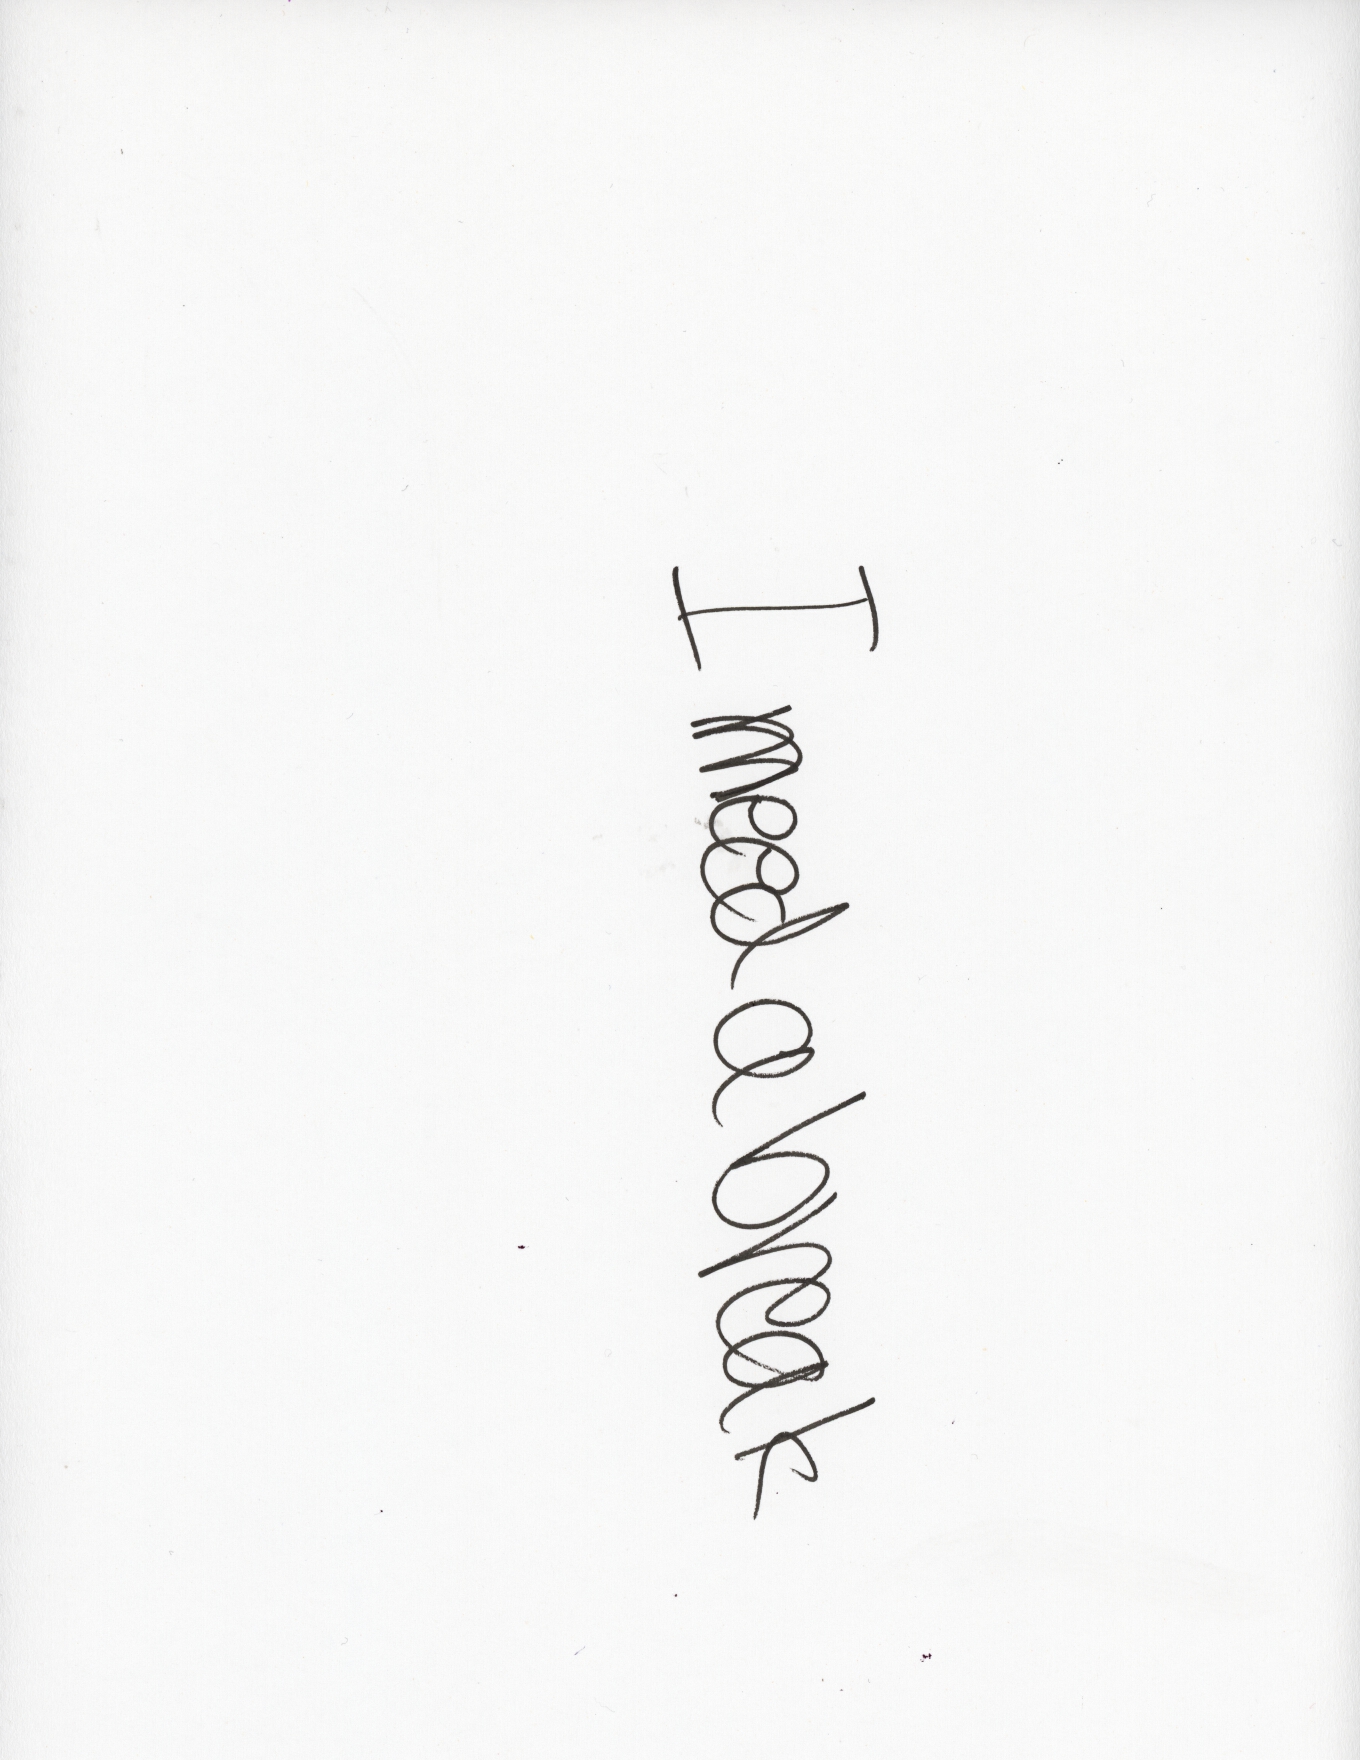 I need a break